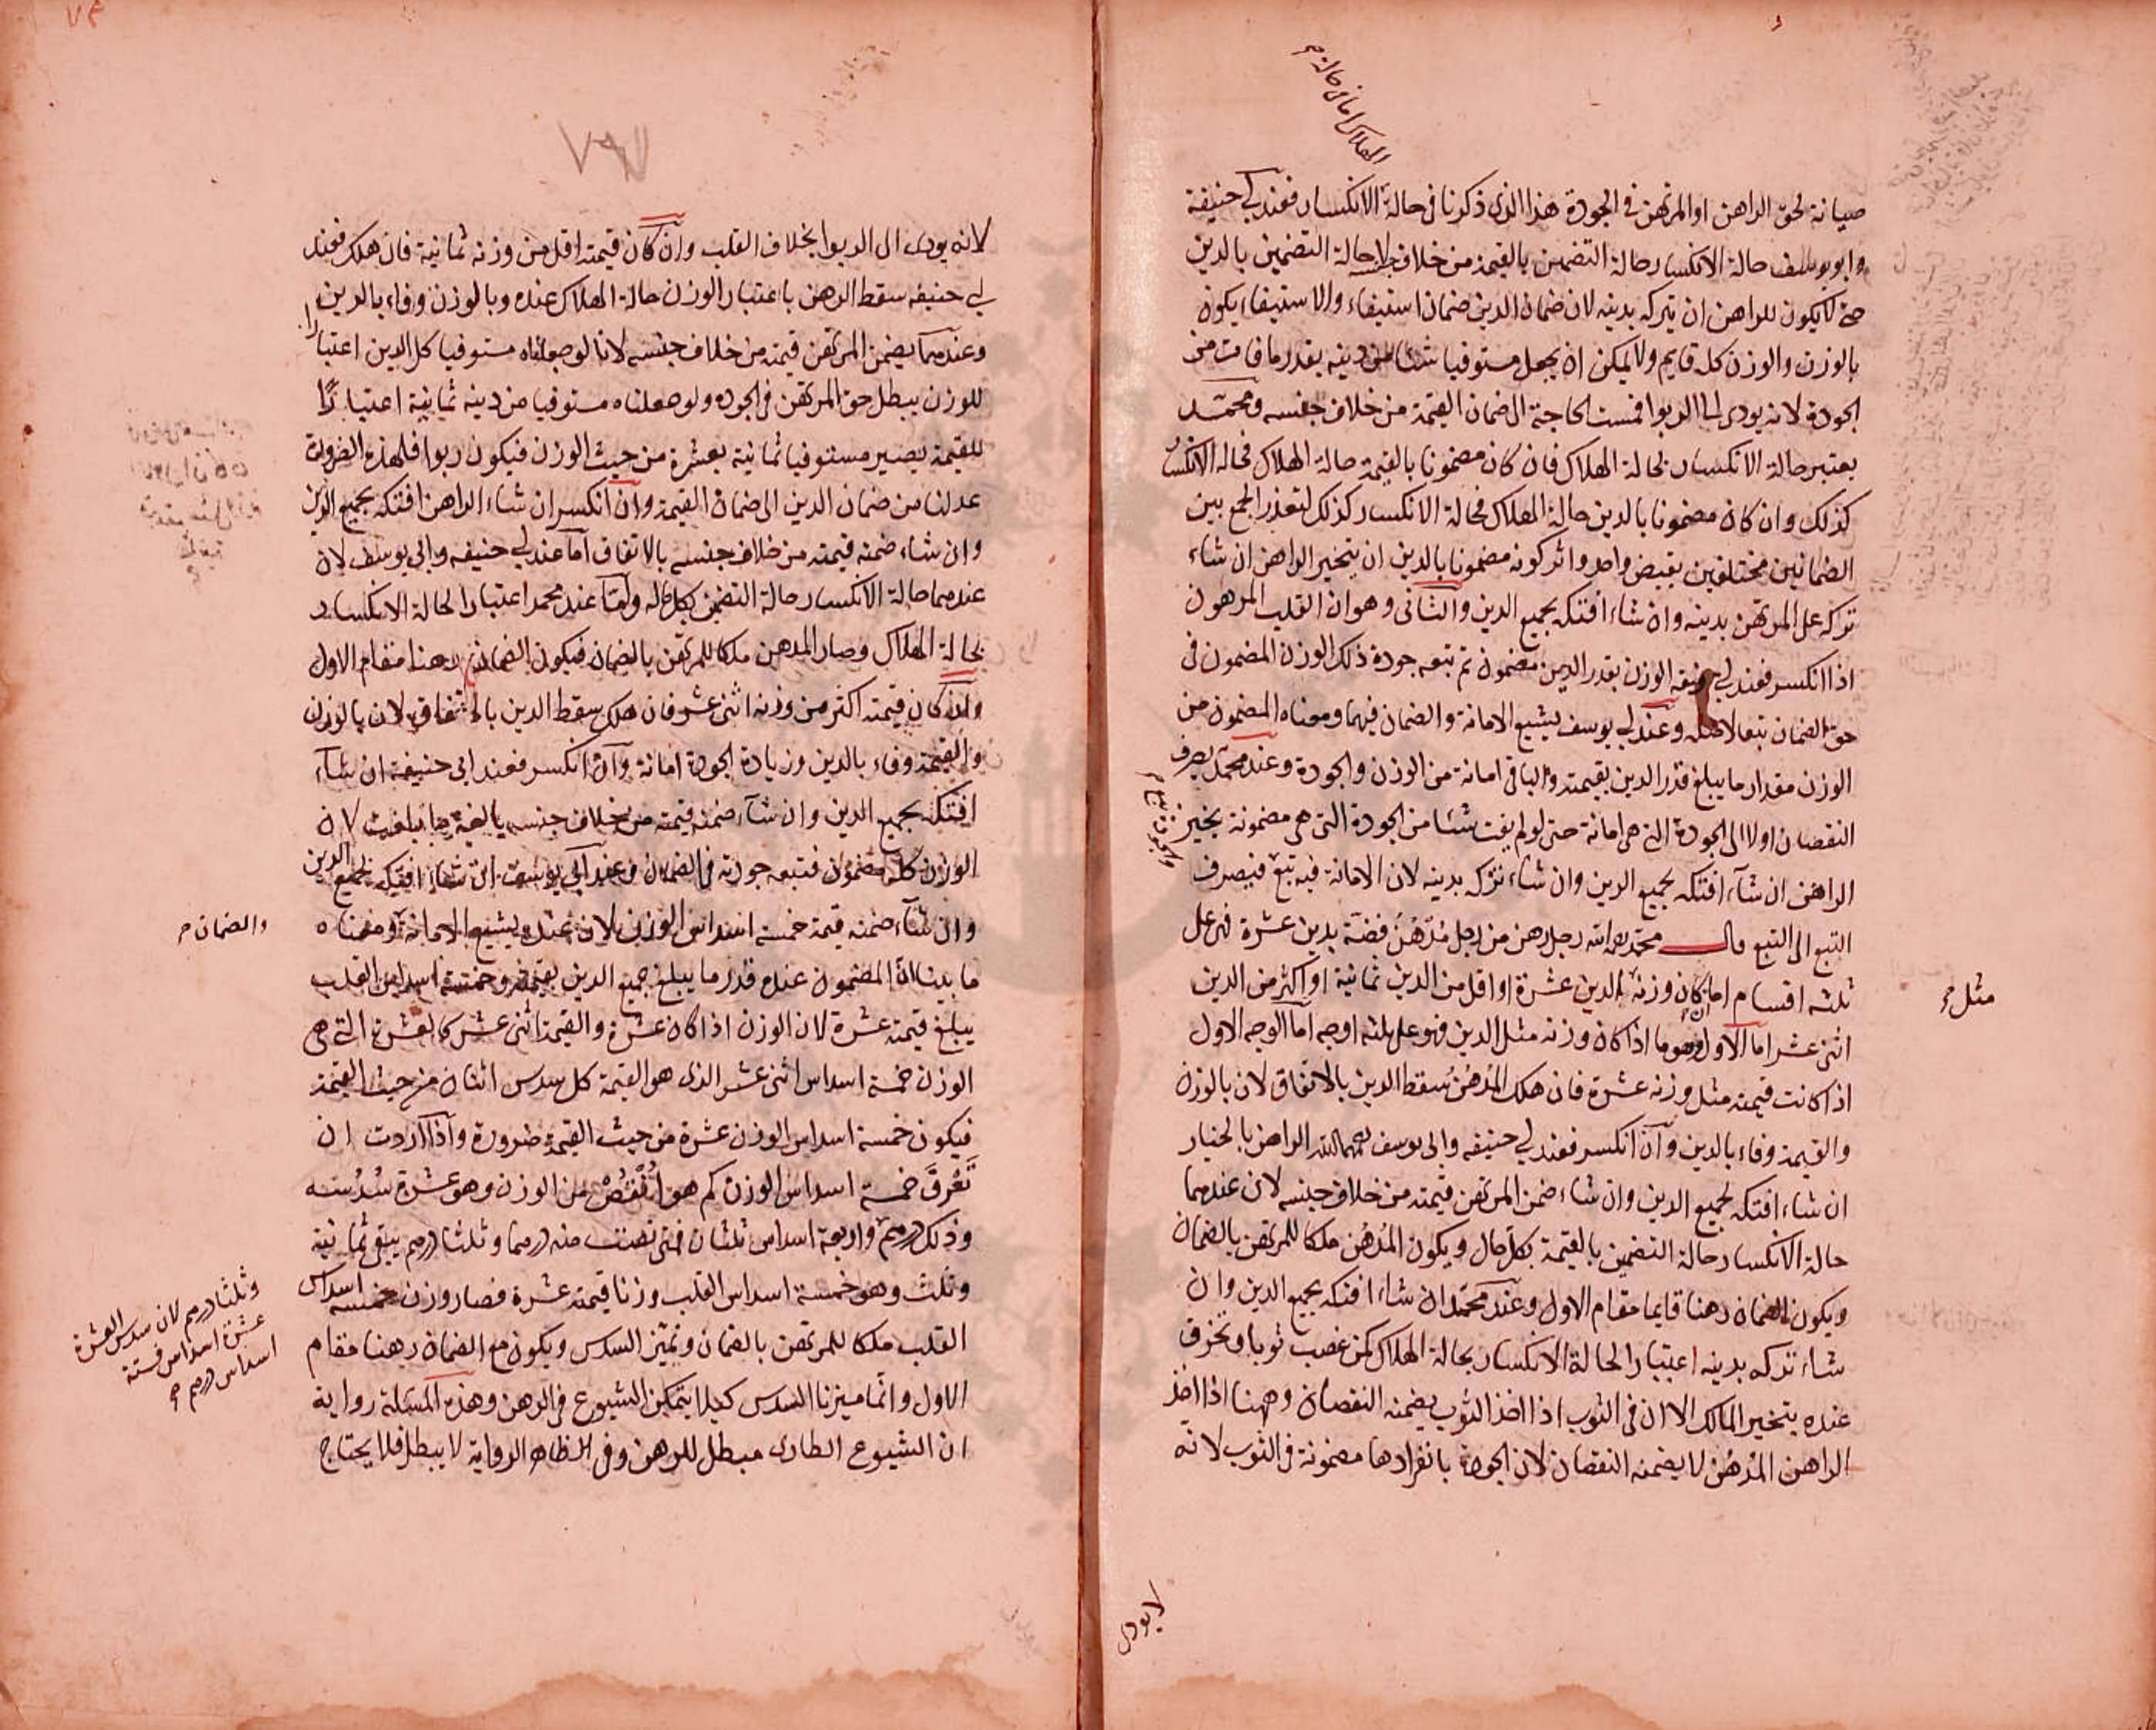 الهلاك اما في حالة
صيانة لحق الراهن او المرتهن في الجودة هذا الذي ذكرنا في حالة الانكسار فعند ابي حنيفة
وابو يوسف حالة الانكسار حالة التضمين بالقيمة من خلاف جنسه لا حالة التضمين بالدين
حتى لا يكون للراهن ان يتركه بدينه لان ضمان الدين ضمان استيفاء والاستيفاء يكون
بالوزن والوزن كله قايم ولا يمكن ان يجعل مستوفيا شئا من دينه بقدر ما فات من
الجودة لانه يودى الى الربوا فمست الحاجة الى ضمان القيمة من خلاف جنسه ومحمد
يعتبر حالة الانكسار بحالة الهلاك فان كان مضمونا بالقيمة حالة الهلاك فحالة الانكسار
كذلك وان كان مضمونا بالدين حالة الهلاك فحالة الانكسار كذلك لتعذر الجمع بين
الضمانين مختلفين بقبض واحد واثر كونه مضمونا بالدين ان يتخير الراهن ان شاء
تركه على المرتهن بدينه وان شاء افتكه بجميع الدين والثانى وهو ان القلب المرهون
اذا انكسر فعند ابي حنيفه الوزن بقدر الدين مضمون ثم تتبعه جودة ذلك الوزن المضمون في
حق الضمان تبعا لاصله وعند ابي يوسف يشيع الامانة والضمان فيهما ومعناه المضمون من
الوزن مقدار ما يبلغ قدر الدين بقيمته والباقى امانة من الوزن والجودة وعند محمد يصرف
النقصان اولا الى الجودة التي هى امانة حتى لو لم يفت شئا من الجودة التى هى مضمونة يخير
الراهن ان شآء افتكه بجميع الدين وان شاء تركه بدينه لان الامانة فيه تبع فيصرف
التبع الى التبع قال محمد رحمه الله رجل رهن من رجل مدهن فضة بدين عشرة فهو على
ثلثه اقسام اما ان كان وزنه الدين عشرة او اقل من الدين ثمانية او اكثر من الدين
مثل
اثنى عشر اما الاول وهو ما اذا كان وزنه مثل الدين فهو على ثلثه اوجه اما الوجه الاول
اذا كانت قيمته مثل وزنه عشرة فان هلك المدهن سقط الدين بالاتفاق لان بالوزن
والقيمة وفاء بالدين وان انكسر فعند ابي حنيفه وابى يوسف رحمهما الله الراهن بالخيار
ان شاء افتكه بجميع الدين وان شاء ضمن المرتهن قيمته من خلاف جنسه لان عندهما
حالة الانكسار حالة التضمين بالقيمة بكل حال ويكون المدهن ملكا للمرتهن بالضمان
ويكون الضمان رهنا قايما مقام الاول وعند محمد ان شاء افتكه بجميع الدين وان
شاء تركه بدينه اعتبارا لحالة الانكسار بحالة الهلاك كمن غصب ثوبا وتخرق
عنده يتخير المالك الا ان في الثوب اذا اخذ الثوب يضمنه النقصان وههنا اذا اخذ
الراهن المدهن لا يضمنه النقصان لان الجودة بانفرادها مضمونة في الثوب لانه
لا يودى
لانه يودى الى الربوا بخلاف القلب وان كان قيمته اقل من وزنه ثمانية فان هلك فعند
ابي حنيفه سقط الرهن باعتبار الوزن حالة الهلاك عنده وبالوزن وفاء بالدين
وعندهما يضمن المرتهن قيمته من خلاف جنسه لانا لو جعلناه مستوفيا كل الدين اعتبارا
للوزن يبطل حق المرتهن في الجودة ولو جعلناه مستوفيا من دينه ثمانية اعتبارًا
للقيمة يصير مستوفيا ثمانية بعشرة من حيث الوزن فيكون ربوا فلهذه الضرورة
عدلنا من ضمان الدين الى ضمان القيمة وان انكسر ان شاء الراهن افتكه بجميع الدين
وان شاء ضمنه قيمته من خلاف جنسه بالاتفاق اما عند ابي حنيفه وابي يوسف لان
عندهما حالة الانكسار حالة التضمين بكل حال واما عند محمد اعتبارا لحالة الانكسار
بحالة الهلاك وصار المدهن ملكا للمرتهن بالضمان فيكون الضمان رهنا مقام الاول
وان كان قيمته اكثر من وزنه اثنى عشر فان هلك سقط الدين بالاتفاق لان بالوزن
والقيمة وفاء بالدين وزيادة الجودة امانة وان انكسر فعند ابى حنيفة ان شآء
افتكه بجميع الدين وان شآء ضمنه قيمته من خلاف جنسه بالغة ما بلغت لان
الوزن كله مضمون فتبعه جودته في الضمان وعند ابي يوسف ان شاء افتكه بجميع الدين
وان شآء ضمنه قيمة خمسة اسداس الوزن لان عنده يشيع الامانة ومعناه
والضمان
ما بينا ان المضمون عنده قدر ما يبلغ جميع الدين بقيمته وخمسة اسداس القلب
يبلغ قيمته عشرة لان الوزن اذا كان عشرة والقيمة اثنى عشر كالعشرة التى هى
الوزن خمسة اسداس اثنى عشر الذى هو القيمة كل سدس اثنان من حيث القيمة
فيكون خمسة اسداس الوزن عشرة من حيث القيمة ضرورة واذا اردت ان
تعرف خمسة اسداس الوزن كم هو انقص من الوزن وهو عشرة سدسه
وذلك درهم واربعة اسداس ثلثان فمتى نصفت منه درهما وثلثا درهم يبقى ثمانية
وثلث وهو خمسة اسداس القلب وزنا قيمته عشرة فصار وزن خمسة اسداس
وثلثا درهم لان سدس العشرة
عشرة اسداس فستة
اسداس درهم
القلب ملكا للمرتهن بالضمان وتميز السدس ويكون مع الضمان رهنا مقام
الاول وانما ميزنا السدس كيلا يتمكن الشيوع في الرهن وهذه المسئلة رواية
ان الشيوع الطارى مبطل للرهن وفي الظاهر الرواية لا يبطل فلا يحتاج